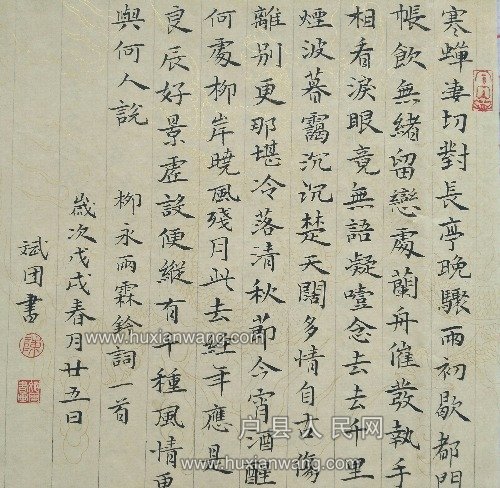 寒蟬淒切對長亭晚驟雨初歇都門
帳飲無緒留戀處蘭舟催發執手
相看淚眼竟無語凝噎念去去千里
煙波暮靄沉沉楚天闊多情自古傷
離別更那堪冷落清秋節今宵酒醒
何處柳岸曉風殘月此去經年應是
良辰好景虛設便縱有千種風情更
與何人說
柳永雨霖鈴詞一首
歲次戊戌春月廿五日
斌团書
www.huxianwang.com
户县人民网
www.huxianwang.com